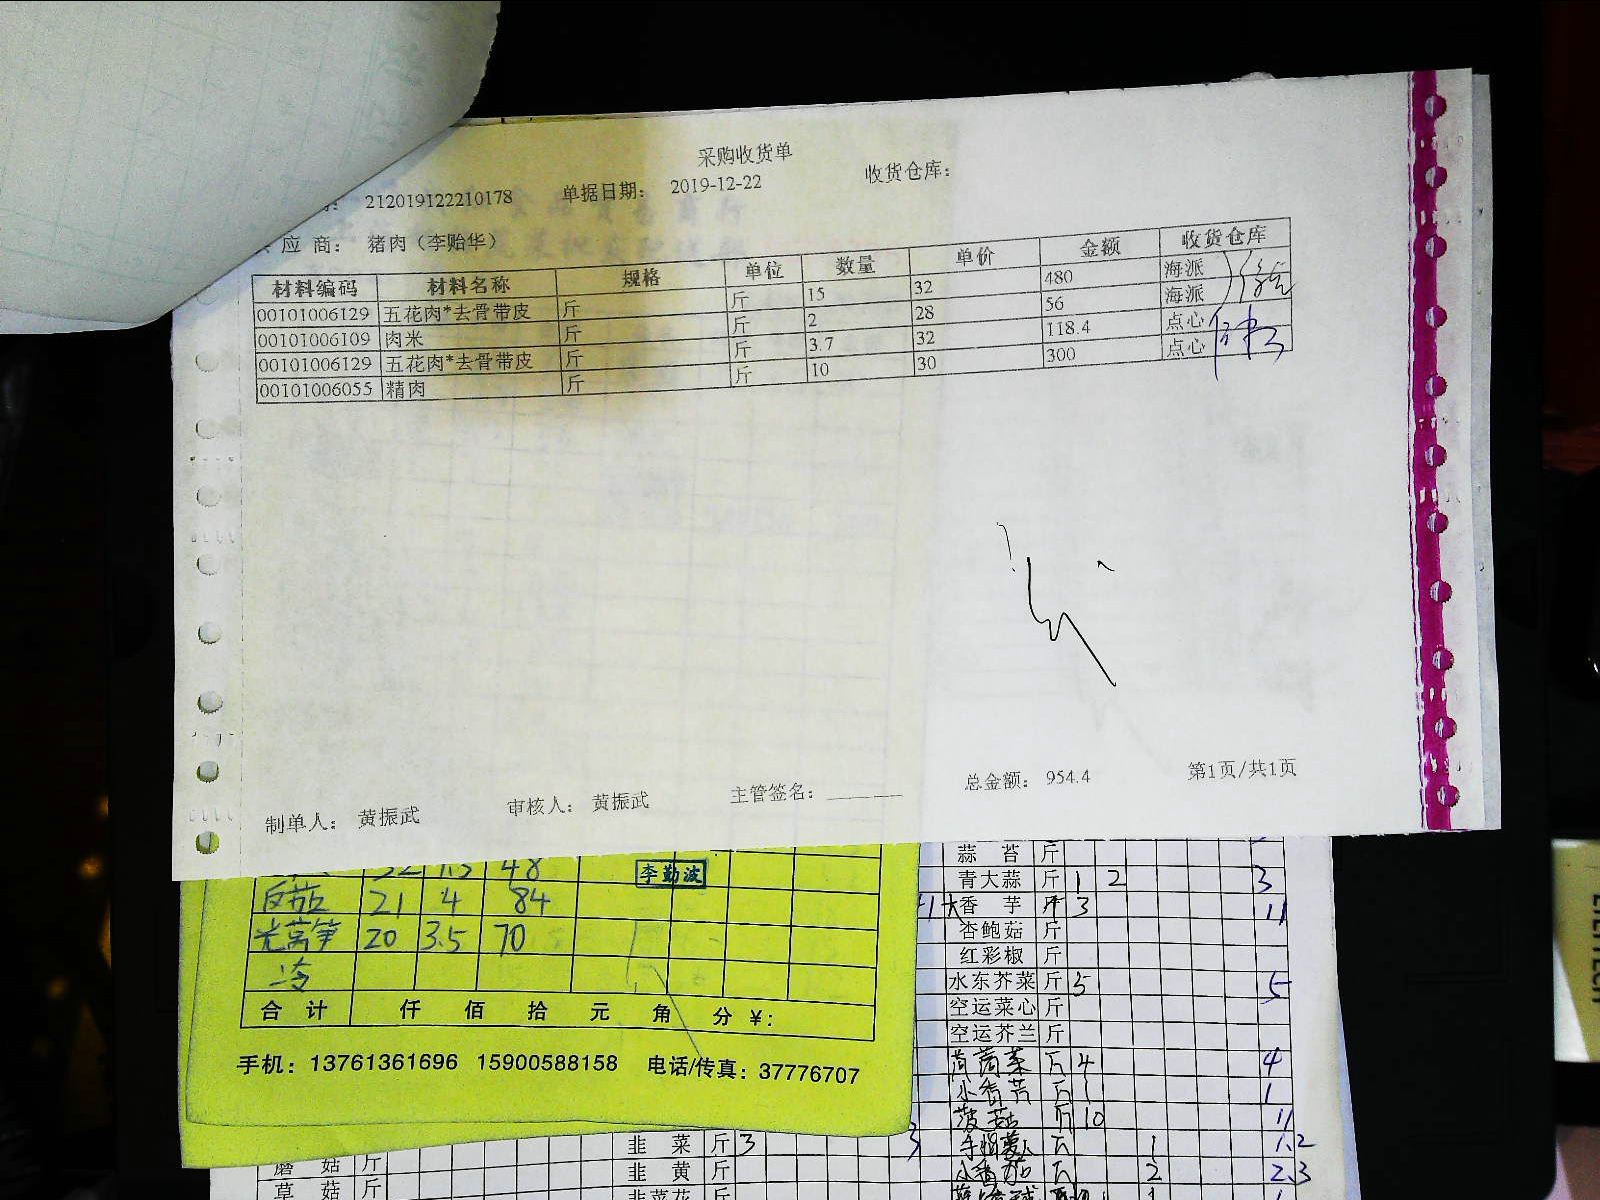 采购收货单
212019122210178 单据日期: 2019-12-22 收货仓库:
应 商: 猪肉（李贻华）
材料编码 材料名称 规格 单位 数量 单价 金额 收货仓库
00101006129 五花肉*去骨带皮 斤 斤 15 32 480 海派
00101006109 肉米 斤 斤 2 28 56 海派
00101006129 五花肉*去骨带皮 斤 斤 3.7 32 118.4 点心
00101006055 精肉 斤 斤 10 30 300 点心
总金额: 954.4 第1页/共1页
制单人: 黄振武 审核人: 黄振武 主管签名:
32 1.5 48 李勤波
21 4 84
光莴笋 20 3.5 70
合 计 仟 佰 拾 元 角 分 ¥:
手机: 13761361696 15900588158 电话/传真: 37776707
蒜 苔 斤
青大蒜 斤 1 2 3
大香 芋 斤 3 11
杏鲍菇 斤
红彩椒 斤
水东芥菜 斤 5 5
空运菜心 斤
空运芥兰 斤
茼蒿菜 斤 4 4
小香芹 斤 1 1
菠菜 斤 10 11
韭 菜 斤 3 3
韭 黄 斤
韭菜花 斤
蘑 菇 斤
草 菇 斤
1 1.2
2 2.3